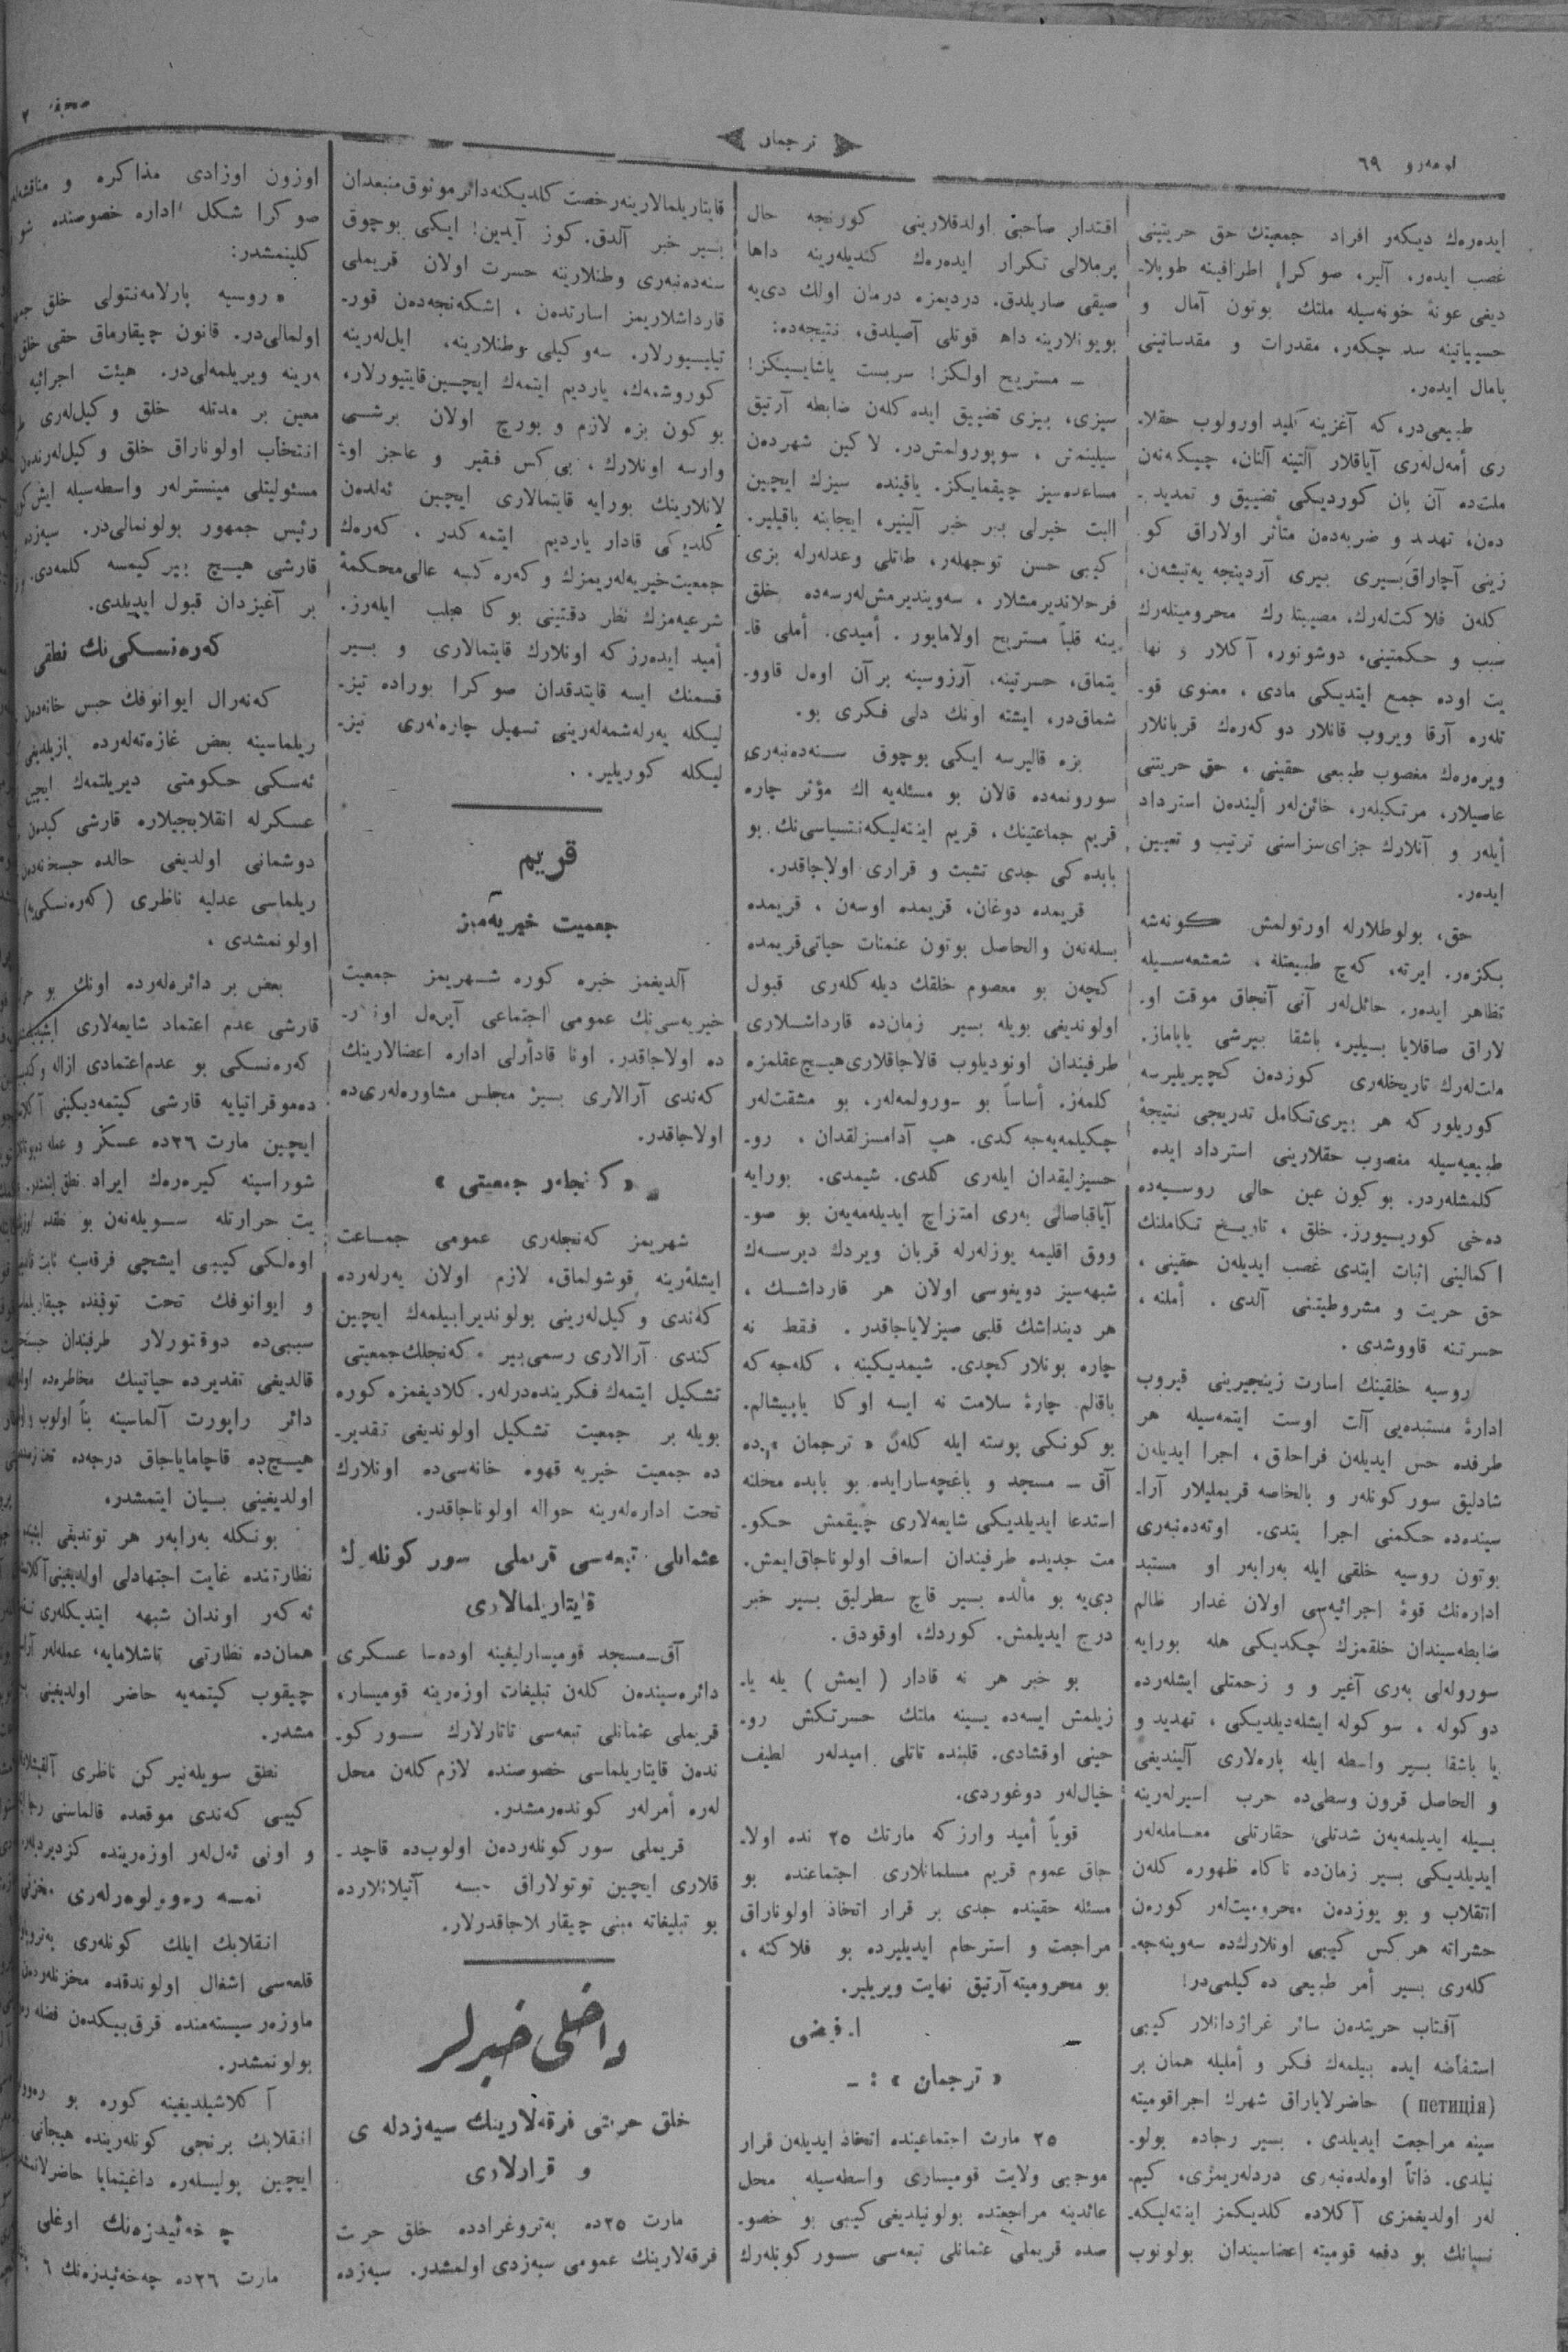 نومه‌رو ٦٩
ترجمان
صحیفه ٢
ایده‌رەك دیكەر افراد جمعیتك حق حریتینی
غصب ایدەر، آلیر، صوكرا اطرافینه طوپلا-
دیغی عونۀ خونەسیله ملتك بوتون آمال و
حسییاتینه سد چكەر، مقدرات و مقدساتینی
پامال ایدەر.
طبیعی‌در، كه آغزینه كلید اورولوب حقلا-
ری أمەل‌لەری آیاقلار آلتینه آلنان، چیكەنەن
ملت‌ده آن بان كوردیكی تضییق و تمدید-
دەن، تهدید و ضربەدەن متأثر اولاراق كو-
زینی آچاراق بسیری بیری آردینجه یەتیشەن،
كلەن فلاكت‌لەرك، مصیبتلرك محرومیتلەرك
سبب و حكمتینی، دوشونور، آكلار و نها
یت اوده جمع ایتدیكی مادی، معنوی قو-
تلەره آرقا ویروب قانلار دوكەرك قربانلار
ویرەرەك مغصوب طبیعی حقینی، حق حریتنی
عاصیلار، مرتكبلەر، خائن‌لەر ألیندەن استرداد
أیلەر و آنلارك جزای سزاسنی ترتیب و تعیین
ایدەر.
حق، بولوطلارله اورتولمش كونەشه
بكزەر. ایرته، كەچ طبیعتله، شعشعەسیله
تظاهر ایدەر. حائل‌لەر آنی آنجاق موقت او-
لاراق صاقلایا بسیلیر، باشقا بیرشی یاپاماز.
ملت‌لەرك تاریخلەری كوزدن كچیریلیرسه
كوریلور كه هر بیری تكامل تدریجی نتیجۀ
طبیعیه‌سیله مغصوب حقلارینی استرداد ایده
كلمشلەردر. بو كون عین حالی روسیه‌ده
دەخی كوریسیورز. خلق، تاریخ تكاملنك
اكمالینی اثبات ایتدی غصب ایدیلەن حقینی،
حق حریت و مشروطیتنی آلدی. أملنه،
حسرتنه قاووشدی.
روسیه خلقینك اسارت زینجیرینی قیروب
ادارۀ مستبدەیی آلت اوست ایتمەسیله هر
طرفده حس ایدیلەن فراحلق، اجرا ایدیلەن
شادلیق سوركونلەر و بالخاصه قریملیلار آرا-
سینده‌ده حكمنی اجرا یتدی. اوتەدەنبەری
بوتون روسیه خلقی ایله بەرابەر او مستبد
ادارەنك قوۀ اجرائیه‌سی اولان غدار ظالم
ضابطه‌سیندان خلقمزك چكدیكی هله بورایه
سورولەلی بەری آغیر و و زحمتلی ایشلەرده
دوكوله، سوكوله ایشلەدیلدیكی، تهدید و
یا باشقا بسیر واسطه ایله پارەلاری آلیندیغی
و الحاصل قرون وسطی‌ده حرب اسیرلەرینه
بسیله ایدیلمەیەن شدتلی حقارتلی معامله‌لەر
ایدیلدیكی بسیر زمان‌ده ناكاه ظهوره كلەن
انقلاب و بو یوزدەن محرومیت‌لەر كورەن
حشراته هركس كیبی اونلارك‌ده سەوینەجە-
كلەری بسیر أمر طبیعی ده كیلمی‌در!
آفتاب حریتدەن سائر غراژدانلار كیبی
استفاضه ایده بیلمەك فكر و أملیله همان بر
(петиція) حاضرلایاراق شهرك اجراقومیته
سینه مراجعت ایدیلدی. بسیر رجاده بولو-
نیلدی. ذاتاً اوەلدەنبەری دردلەریمزی، كیم-
لەر اولدیغمزی آكلاده كلدیكمز اینتەلیكە-
نسیانك بو دفعه قومیته اعضاسیندان بولونوب
اقتدار صاحبی اولدقلارینی كورنجه حال
پرملالی تكرار ایدەرەك كندیلەرینه داها
صیقی صاریلدق. دردیمزه درمان اولك دی‌یه
بویونلارینه داها قوتلی آصیلدق، نتیجەده:
ـ مستریح اولكز! سربست یاشایسیكز!
سیزی، بیزی تضییق ایده كلەن ضابطه آرتیق
سیلینمش، سوپورولمش‌در. لاكین شهردەن
مساعدەسیز چیقمایكز. یاقینده سیزك ایچین
البت خیرلی بیر خبر آلینیر، ایجابنه باقیلیر.
كیبی حسن توجهلەر، طاتلی وعدلەرله بزی
فرحلاندیرمشلار، سەویندیرمش‌لەرسەده خلق
ینه قلباً مستریح اولامایور. أمیدی، أملی قا-
یتماق، حسرتینه، آرزوسینه بر آن اوەل قاوو-
شماق‌در، ایشته اونك دلی فكری بو.
بزه قالیرسه ایكی بوچوق سنەدەنبەری
سورونمەده قالان بو مسئلەیه اك مؤثر چاره
قریم جماعتینك، قریم اینتەلیكەنتسیاسی‌نك بو
بابده‌كی جدی تشبث و قراری اولاجاقدر.
قریمده دوغان، قریمده اوسەن، قریمده
بسلەنەن والحاصل بوتون عنعنات حیاتی قریمده
كچەن بو معصوم خلقك دیله‌كلەری قبول
اولوندیغی بویله بسیر زمان‌ده قارداشلاری
طرفیندان اونودیلوب قالاجاقلاری هیچ عقلمزه
كلمەز. أساساً بو سورولمەلەر، بو مشقت‌لەر
چكیلمەیەجەكدی. هپ آدامسزلقدان، رو-
حسیزلیقدان ایلەری كلدی. شیمدی. بورایه
آیاقباصالی بەری امتزاج ایدیلەمەیەن بو صو-
ووق اقلیمه یوزلەرله قربان ویردك دیرسەك
شبهه‌سیز دویغوسی اولان هر قارداشك،
هر دینداشك قلبی صیزلایاجاقدر. فقط نه
چاره بونلار كچدی. شیمدیكینه، كلەجەكه
باقالم. چارۀ سلامت نه ایسه اوكا یاپیشالم.
بو كونكی پوسته ایله كلەن «ترجمان» ده
آق ـ مسجد و باغچەسرایده بو بابده محلنه
استدعا ایدیلدیكی شایعه‌لاری چیقمش حكو-
مت جدیده طرفیندان اسعاف اولوناجاق‌ایمش.
دی‌یه بو مألده بسیر قاچ سطرلیق بسیر خبر
درج ایدیلمش. كوردك، اوقودق.
بو خبر هر نه قادار (ایمش) یله یا-
زیلمش ایسه‌ده یسینه ملتك حسرتكش رو-
حینی اوقشادی. قلبنده تاتلی امیدلەر لطیف
خیال‌لەر دوغوردی.
قویاً أمید وارزكه مارتك ٢٥ نده اولا-
جاق عموم قریم مسلمانلاری اجتماعنده بو
مسئله حقینده جدی بر قرار اتخاذ اولوناراق
مراجعت و استرحام ایدیلیرده بو فلاكته،
بو محرومیته آرتیق نهایت ویریلیر.
ا. فیضی
«ترجمان»: ـ
٢٥ مارت اجتماعینده اتخاذ ایدیلەن قرار
موجبی ولایت قومیساری واسطه‌سیله محل
عائدینه مراجعتده بولونیلدیغی كیبی بو خصو-
صده قریملی عثمانلی تبعه‌سی سوركونلەرك
قایتاریلمالارینه رخصت كلدیكنه دائر موثوق منبعدان
بسیر خبر آلدق. كوز آیدین! ایكی بوچوق
سنەدەنبەری وطنلارینه حسرت اولان قریملی
قارداشلاریمز اسارتدن، اشكەنجەدەن قور-
تیلیسیورلار. سەوكیلی وطنلارینه، ایل‌لەرینه
كوروشمەك، یاردیم ایتمەك ایچین قایتیورلار،
بو كون بزه لازم و بورچ اولان برشی
وارسه اونلارك، بی كس فقیر و عاجز او-
لانلارینك بورایه قایتمالاری ایچین ئەلدەن
كلدیكی قادار یاردیم ایتمەكدر، كەرەك
جمعیت خیریەلەریمزك و كەرەكسه عالی محكمۀ
شرعیه‌مزك نظر دقتینی بوكا جلب ایلەرز.
أمید ایدەرزكه اونلارك قایتمالاری و بسیر
قسمنك ایسه قایتدقدان صوكرا بوراده تیز-
لیكله یەرلەشمەلەرینی تسهیل چارەلەری تیز-
لیكله كوریلیر.
قریم
جمعیت خیریه‌میز
آلدیغمز خبره كوره شهریمز جمعیت
خیریه‌سی‌نك عمومی اجتماعی آپرەل اونلار-
ده اولاجاقدر. اونا قادأرلی اداره اعضالارینك
كەندی آرالاری بسیز مجلس مشاورەلەری‌ده
اولاجاقدر.
«كنجلەر جمعیتی»
شهریمز كەنجلەری عمومی جماعت
ایشلەرینه قوشولماق، لازم اولان یەرلەرده
كەندی وكیل‌لەرینی بولوندیرابیلمەك ایچین
كندی آرالاری رسمی بیر «كەنجلك جمعیتی»
تشكیل ایتمەك فكرینده‌درلەر. كلادیغمزه كوره
بویله بر جمعیت تشكیل اولوندیغی تقدیر-
ده جمعیت خیریه قهوه خانەسی‌ده اونلارك
تحت ادارەلەرینه حواله اولوناجاقدر.
عثمانلی تبعه‌سی قریملی سوركونلەرك
قایتاریلمالاری
آق‌ـ‌مسجد قومیسارلیغینه اودەسا عسكری
دائرەسیندەن كلەن تبلیغات اوزەرینه قومیسار،
قریملی عثمانلی تبعه‌سی تاتارلارك سوركو-
ندەن قایتاریلماسی خصوصنده لازم كلەن محل
لەره أمرلەر كوندەرمشدر.
قریملی سوركونلەردەن اولوب‌ده قاچد-
قلاری ایچین توتولاراق حبسه آتیلانلارده
بو تبلیغاته مبنی چیقاریلاجاقدرلار.
داخلی خبرلر
خلق حریتی فرقه‌لارینك سیەزدلەری
و قرارلاری
مارت ٢٥ده پەتروغرادده خلق حریت
فرقەلارینك عمومی سیەزدی اولمشدر. سیەزده
اوزون اوزادی مذاكره و مناقشه‌لەر
صوكرا شكل اداره خصوصنده شو
كلینمشدر:
روسیه پارلامەنتولی خلق
اولمالی‌در. قانون چیقارماق حقی خلق
ەرینه ویریلمەلی‌در. هیئت اجرائیه
معین بر مدتله خلق وكیل‌لەری
انتخاب اولوناراق خلق وكیل‌لەرندەن
مسئولیتلی مینسترلەر واسطه‌سیله ایش
رئیس جمهور بولونمالی‌در. سیەزده
قارشی هیچ بیر كیمسه كلمەدی.
بر آغیزدان قبول ایدیلدی.
كەرەنسكی‌نك نطقی
كەنەرال ایوانوفك حبس خانەدەن
ریلماسینه بعض غازەتەلەرده یازیلدیغی
ئەسكی حكومتی دیریلتمەك ایچین
عسكرله انقلابجیلاره قارشی كیدەن
دوشمانی اولدیغی حالده حبسخانەدەن
ریلماسی عدلیه ناظری (كەرەنسكی‌یه)
اولونمشدی.
بعض بر دائرەلەرده اونك بو
قارشی عدم اعتماد شایعه‌لاری
كەرەنسكی بو عدم اعتمادی ازاله
دەموقراتیایه قارشی كیتمەدیكینی
ایچین مارت ٢٦ده عسكر و عمله
شوراسینه كیرەرەك ایراد نطق ایتمشدر.
یت حرارتله سویلەنەن بو نطقده
اوەلكی كیبی ایشچی فرقەسینه ثابت
و ایوانوفك تحت توقیفده
سببی‌ده دوقتورلار طرفیندان
قالدیغی تقدیرده حیاتینك مخاطرەده
دائر راپورت آلماسینه بناً اولوب
هیچ‌ده قاچامایاجاق درجەده
اولدیغینی بسیان ایتمشدر.
بونكله بەرابەر هر توتدیغی
نظارتنده غایت اجتهادلی اولدیغینی
ئەكەر اوندان شبهه ایتدیكلەری
همان‌ده نظارتی تاشلامایه، عمله‌لەر
چیقوب كیتمەیه حاضر اولدیغینی
مشدر.
نطق سویلەنیركن ناظری
كیبی كەندی موقعده قالماسنی
و اونی ئەل‌لەر اوزەرینده
نمسه رەوولوەرلەری مخزنی
انقلابك ایلك كونلەری
قلعه‌سی اشغال اولوندقده
ماوزەر سیستەمنده قرق‌بیكدەن فضله
بولونمشدر.
آكلاشیلدیغینه كوره بو
انقلابك برنجی كونلەرینده هیجانی
ایچین پولیسلەره داغیتمایا
چخەئیدزەنك اوغلی
مارت ٢٦ده چەخەئیدزەنك ٦